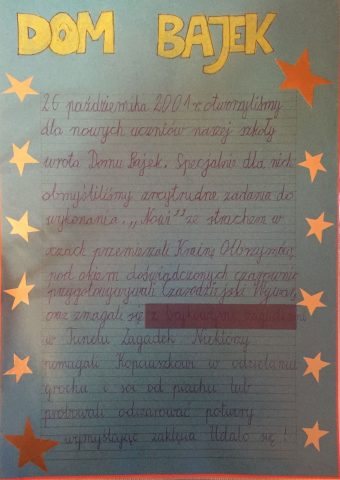 DOM BAJEK
26 października 2001 r. otworzyliśmy
dla nowych uczniów naszej szkoły
wrota Domu Bajek. Specjalnie dla nich
obmyśliliśmy arcytrudne zadania do
wykonania. ,,Nowi" ze strachem w
oczach przemierzali Krainę Olbrzymów,
pod okiem doświadczonych czarownic
przygotowywali Czarodziejski Wywar,
oraz zmagali się z bajkowymi zagadkami
w Tunelu Zagadek. Niektórzy
pomagali Kopciuszkowi w oddzielaniu
grochu i soi od piachu lub
próbowali odczarować potwory
wymyślając zaklęcia. Udało się!